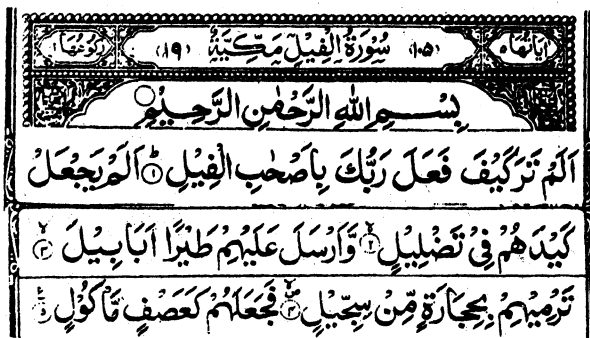 اٰيَاتُهَا ٥ (١٠٥) سُوْرَةُ الْفِيْلِ مَكِّيَّةٌ (١٩) رُكُوْعُهَا
بِسْمِ اللهِ الرَّحْمٰنِ الرَّحِيْمِ
اَلَمْ تَرَ كَيْفَ فَعَلَ رَبُّكَ بِاَصْحٰبِ الْفِيْلِ ۱ اَلَمْ يَجْعَلْ
كَيْدَهُمْ فِيْ تَضْلِيْلٍ ۲ وَّاَرْسَلَ عَلَيْهِمْ طَيْرًا اَبَابِيْلَ ۳
تَرْمِيْهِمْ بِحِجَارَةٍ مِّنْ سِجِّيْلٍ ۴ فَجَعَلَهُمْ كَعَصْفٍ مَّاْكُوْلٍ